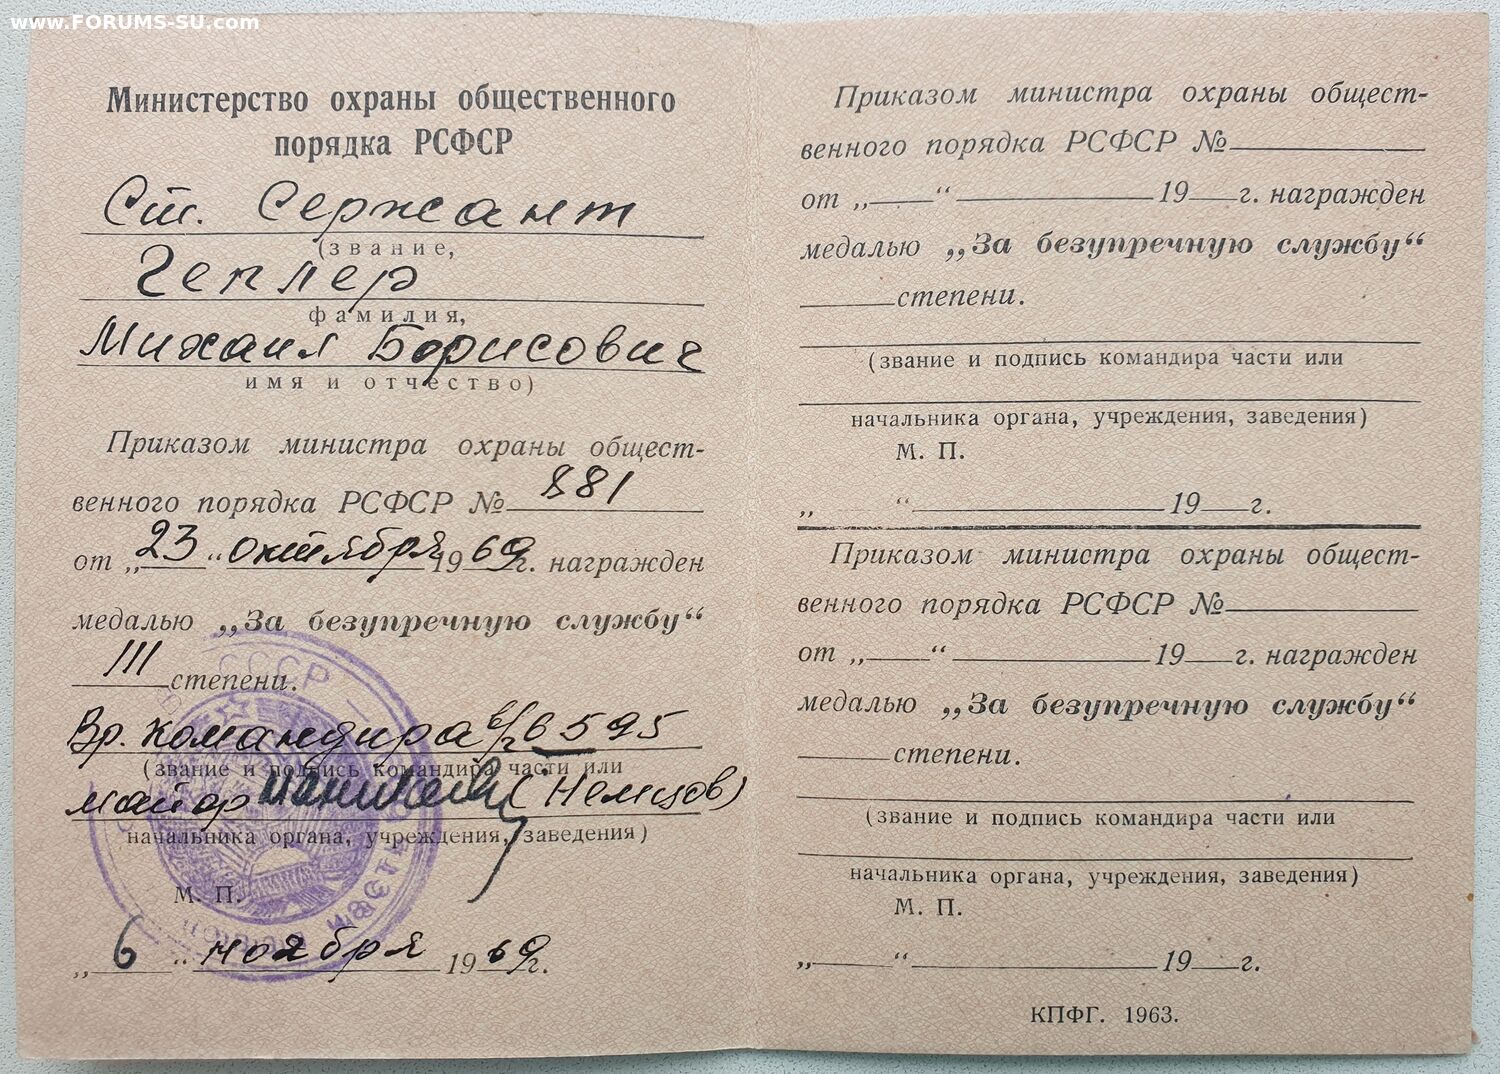 www.FORUMS-SU.com
Министерство охраны общественного
порядка РСФСР
Ст. Сержант
(звание,
Геплер
фамилия,
Михаил Борисович
имя и отчество)
Приказом министра охраны общест-
венного порядка РСФСР № 881
от „23“ октября 1969г. награжден
медалью „За безупречную службу“
III степени.
Вр. командира в/ч 6595
(звание и подпись командира части или
майор (Немцов)
начальника органа, учреждения, заведения)
М. П.
„6“ ноября 1969г.
СССР
Приказом министра охраны общест-
венного порядка РСФСР №
от „ “ 19 г. награжден
медалью „За безупречную службу“
степени.
(звание и подпись командира части или
начальника органа, учреждения, заведения)
М. П.
„ “ 19 г.
Приказом министра охраны общест-
венного порядка РСФСР №
от „ “ 19 г. награжден
медалью „За безупречную службу“
степени.
(звание и подпись командира части или
начальника органа, учреждения, заведения)
М. П.
„ “ 19 г.
КПФГ. 1963.